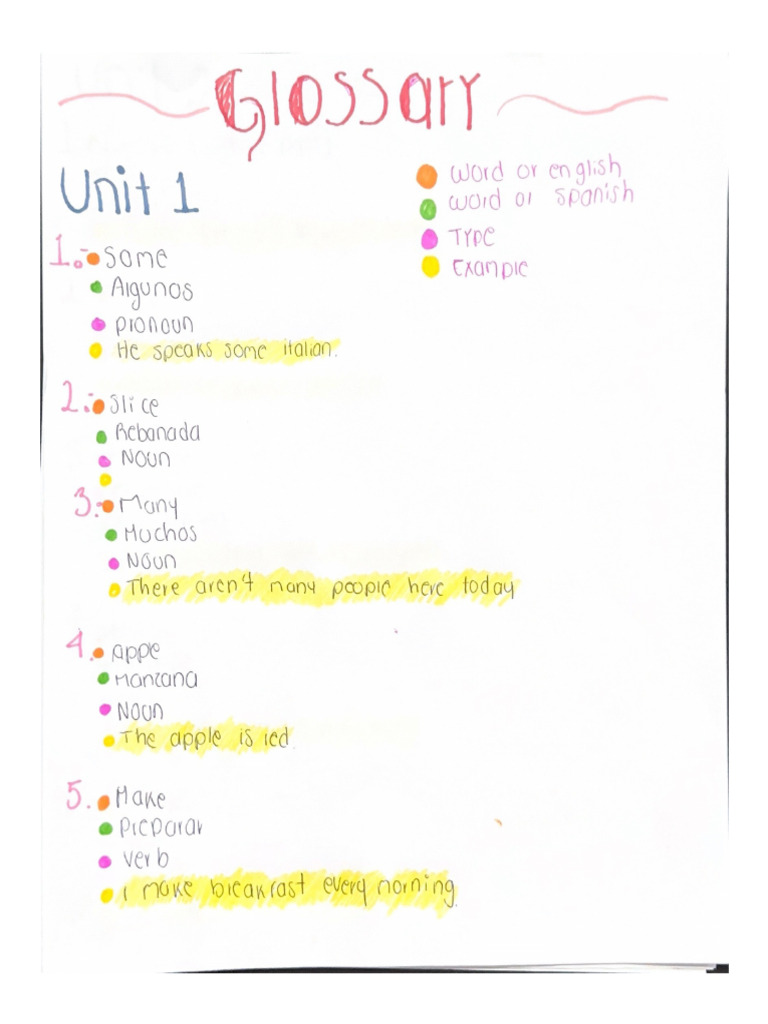 Glossary
Unit 1
word or english
word or spanish
Type
Example
1.- Some
Algunos
pronoun
He speaks some italian.
2.- Slice
Rebanada
Noun
3.- Many
Muchos
Noun
There aren't many people here today
4. apple
Manzana
Noun
The apple is red.
5. Make
preparar
verb
I make breakfast every morning.